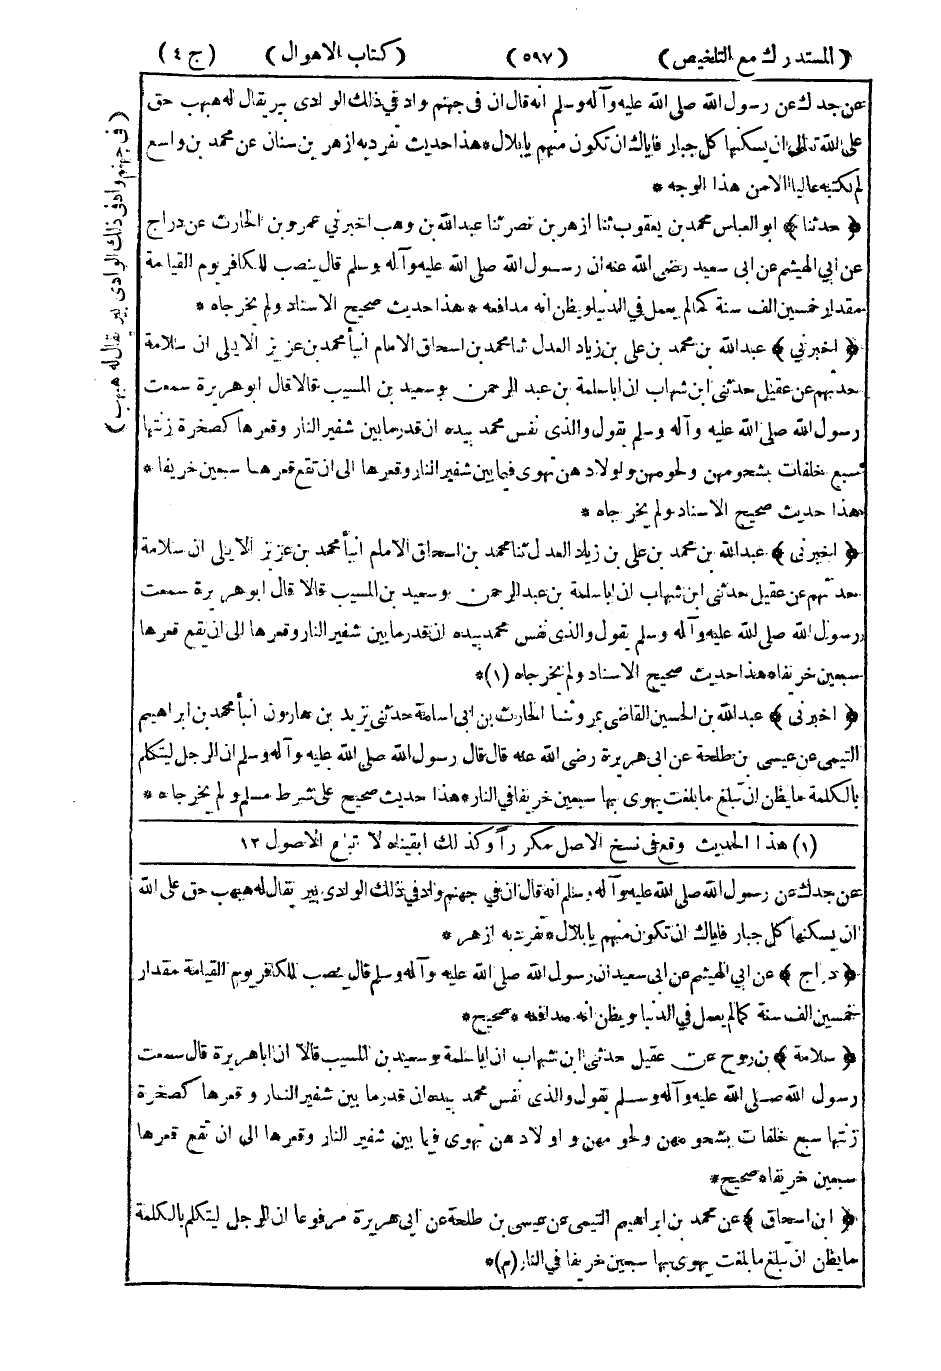 ﴿ المستدرك مع التلخيص ﴾ ﴿ ٥٩٧ ﴾ ﴿ كتاب الاهوال ﴾ ﴿ ج ٤ ﴾
عن جدك عن رسول الله صلى الله عليه وآله وسلم انه قال ان فى جهنم واد فى ذلك الوادى بير يقال له هبهب حق
على الله تعالى ان يسكنها كل جبار فاياك ان تكون منهم يا بلال * هذا حديث تفرد به ازهر بن سنان عن محمد بن واسع
لم نكتبه عاليا الا من هذا الوجه *
﴿ حدثنا ﴾ ابو العباس محمد بن يعقوب ثنا ازهر بن نصر ثنا عبد الله بن وهب اخبرني عمرو بن الحارث عن دراج
عن ابي الهيثم عن ابى سعيد رضى الله عنه ان رسول الله صلى الله عليه وآله وسلم قال ينصب للكافر يوم القيامة
مقدار خمسين الف سنة كما لم يعمل في الدنيا ويظن انه مدافعه * هذا حديث صحيح الاسناد ولم يخرجاه *
﴿ اخبرني ﴾ عبد الله بن محمد بن على بن زياد العدل ثنا محمد بن اسحاق الامام انبأ محمد بن عزيز الايلى ان سلامة
حدثهم عن عقيل حدثنى ابن شهاب ان ابا سلمة بن عبد الرحمن وسعيد بن المسيب قالا قال ابو هريرة سمعت
رسول الله صلى الله عليه وآله وسلم يقول والذى نفس محمد بيده ان قدر ما بين شفير النار وقعرها كصخرة زنتها
سبع خلفات بشحومهن ولحومهن واولادهن تهوى فيما بين شفير النار وقعرها الى ان تقع قعرها سبعين خريفا *
هذا حديث صحيح الاسناد ولم يخرجاه *
﴿ اخبرنى ﴾ عبد الله بن محمد بن على بن زياد العدل ثنا محمد بن اسحاق الامام انبأ محمد بن عزيز الايلى ان سلامة
حدثهم عن عقيل حدثنى ابن شهاب ان ابا سلمة بن عبد الرحمن وسعيد بن المسيب قالا قال ابو هريرة سمعت
رسول الله صلى الله عليه وآله وسلم يقول والذى نفس محمد بيده ان قدر ما بين شفير النار وقعرها الى ان يقع قعرها
سبعين خريفا * هذا حديث صحيح الاسناد ولم يخرجاه (١) *
﴿ اخبرنى ﴾ عبد الله بن الحسين القاضى بمرو ثنا الحارث بن ابى اسامة حدثنى يزيد بن هارون انبأ محمد بن ابراهيم
التيمى عن عيسى بن طلحة عن ابى هريرة رضى الله عنه قال قال رسول الله صلى الله عليه وآله وسلم ان الرجل ليتكلم
بالكلمة ما يظن ان تبلغ ما بلغت يهوى بها سبعين خريفا في النار * هذا حديث صحيح على شرط مسلم ولم يخرجاه *
(١) هذا الحديث وقع فى نسخ الاصل مكرراً وكذلك ابقيناه لا تباع الاصول ١٢
عن جدك عن رسول الله صلى الله عليه وآله وسلم انه قال ان في جهنم واد في ذلك الوادى بير يقال له هبهب حق على الله
ان يسكنها كل جبار فاياك ان تكون منهم يا بلال * تفرد به ازهر *
﴿ دراج ﴾ عن ابي الهيثم عن ابى سعيد ان رسول الله صلى الله عليه وآله وسلم قال ينصب للكافر يوم القيامة مقدار
خمسين الف سنة كما لم يعمل في الدنيا ويظن انه مدافعه * صحيح *
﴿ سلامة ﴾ بن روح عن عقيل حدثنى ابن شهاب ان ابا سلمة وسعيد بن المسيب قالا ان ابا هريرة قال سمعت
رسول الله صلى الله عليه وآله وسلم يقول والذى نفس محمد بيده ان قدر ما بين شفير النار وقعرها كصخرة
زنتها سبع خلفات بشحومهن ولحومهن واولادهن تهوى فيما بين شفير النار وقعرها الى ان تقع قعرها
سبعين خريفا * صحيح *
﴿ ابن اسحاق ﴾ عن محمد بن ابراهيم التيمى عن عيسى بن طلحة عن ابى هريرة مرفوعا ان الرجل ليتكلم بالكلمة
ما يظن ان تبلغ ما بلغت يهوى بها سبعين خريفا في النار (م) *
﴿ فى جهنم واد فى ذلك الوادى بير يقال له هبهب ﴾